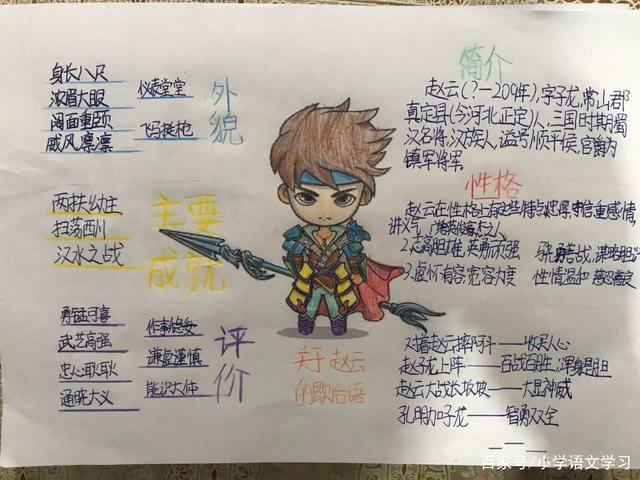 外貌
身长八尺
浓眉大眼
阔面重颐
威风凛凛
仪表堂堂
飞马挺枪
主要成就
两扶幼主
扫荡西川
汉水之战
评价
勇猛可喜
武艺高强
忠心耿耿
通晓大义
谦虚谨慎
能识大体
简介
赵云(?一209年),字子龙,常山郡
真定县(今河北正定)人,三国时期蜀
汉名将,汉族人,谥号顺平侯,官爵为
镇军将军
性格
赵云在性格上有这些特点:忠厚,守信重感情,
讲义气
2.志高胆雄,英勇顽强
骁勇善战,谋略胆
3.虚怀有容,宽容大度
性情温和
关于赵云
的歇后语
对着赵云摔阿斗——收买人心
赵子龙上阵——百战百胜,浑身是胆
赵云大战长坂坡——大显神威
孔明加子龙——智勇双全
百家号/小学语文学习